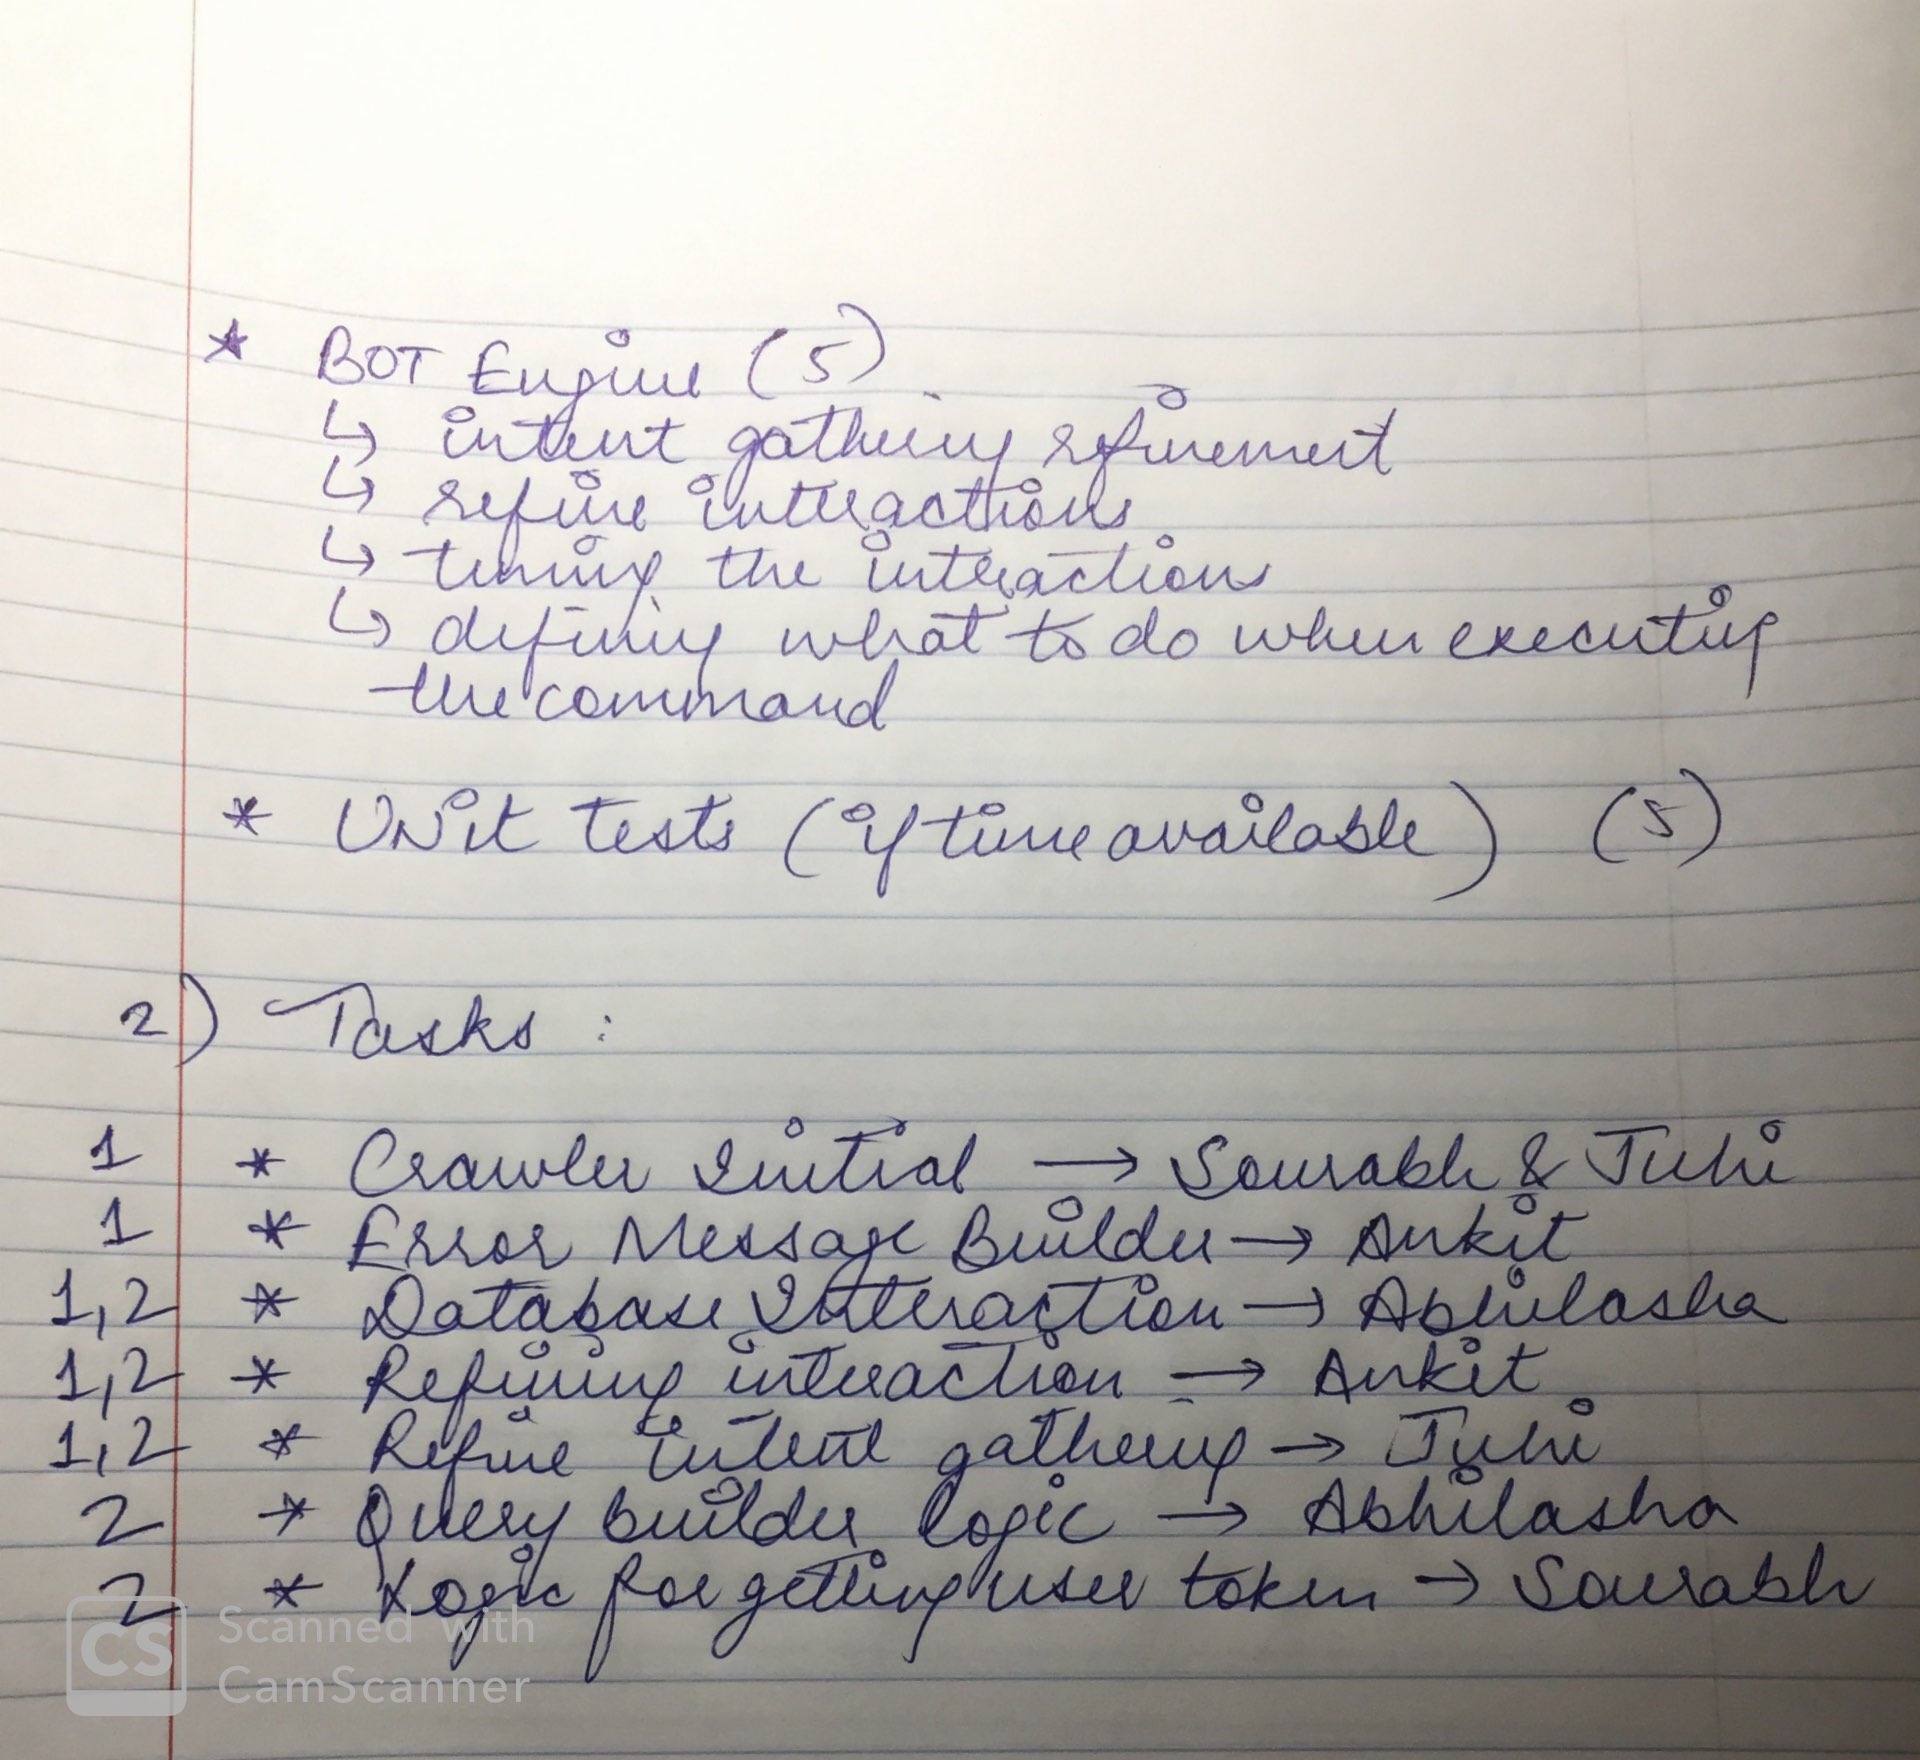 * BOT Engine (5)
↳ intent gathering refinement
↳ refine interactions
↳ tuning the interactions
↳ defining what to do when executing
the command
* UNit tests (if time available) (5)
2) Tasks :
1 * Crawler Initial → Sourabh & Juhi
1 * Error Message Builder → Ankit
1,2 * Database Interaction → Abhilasha
1,2 * Refining interaction → Ankit
1,2 * Refine intent gathering → Juhi
2 * Query builder logic → Abhilasha
2 * Logic for getting user token → Sourabh
CS Scanned with
CamScanner